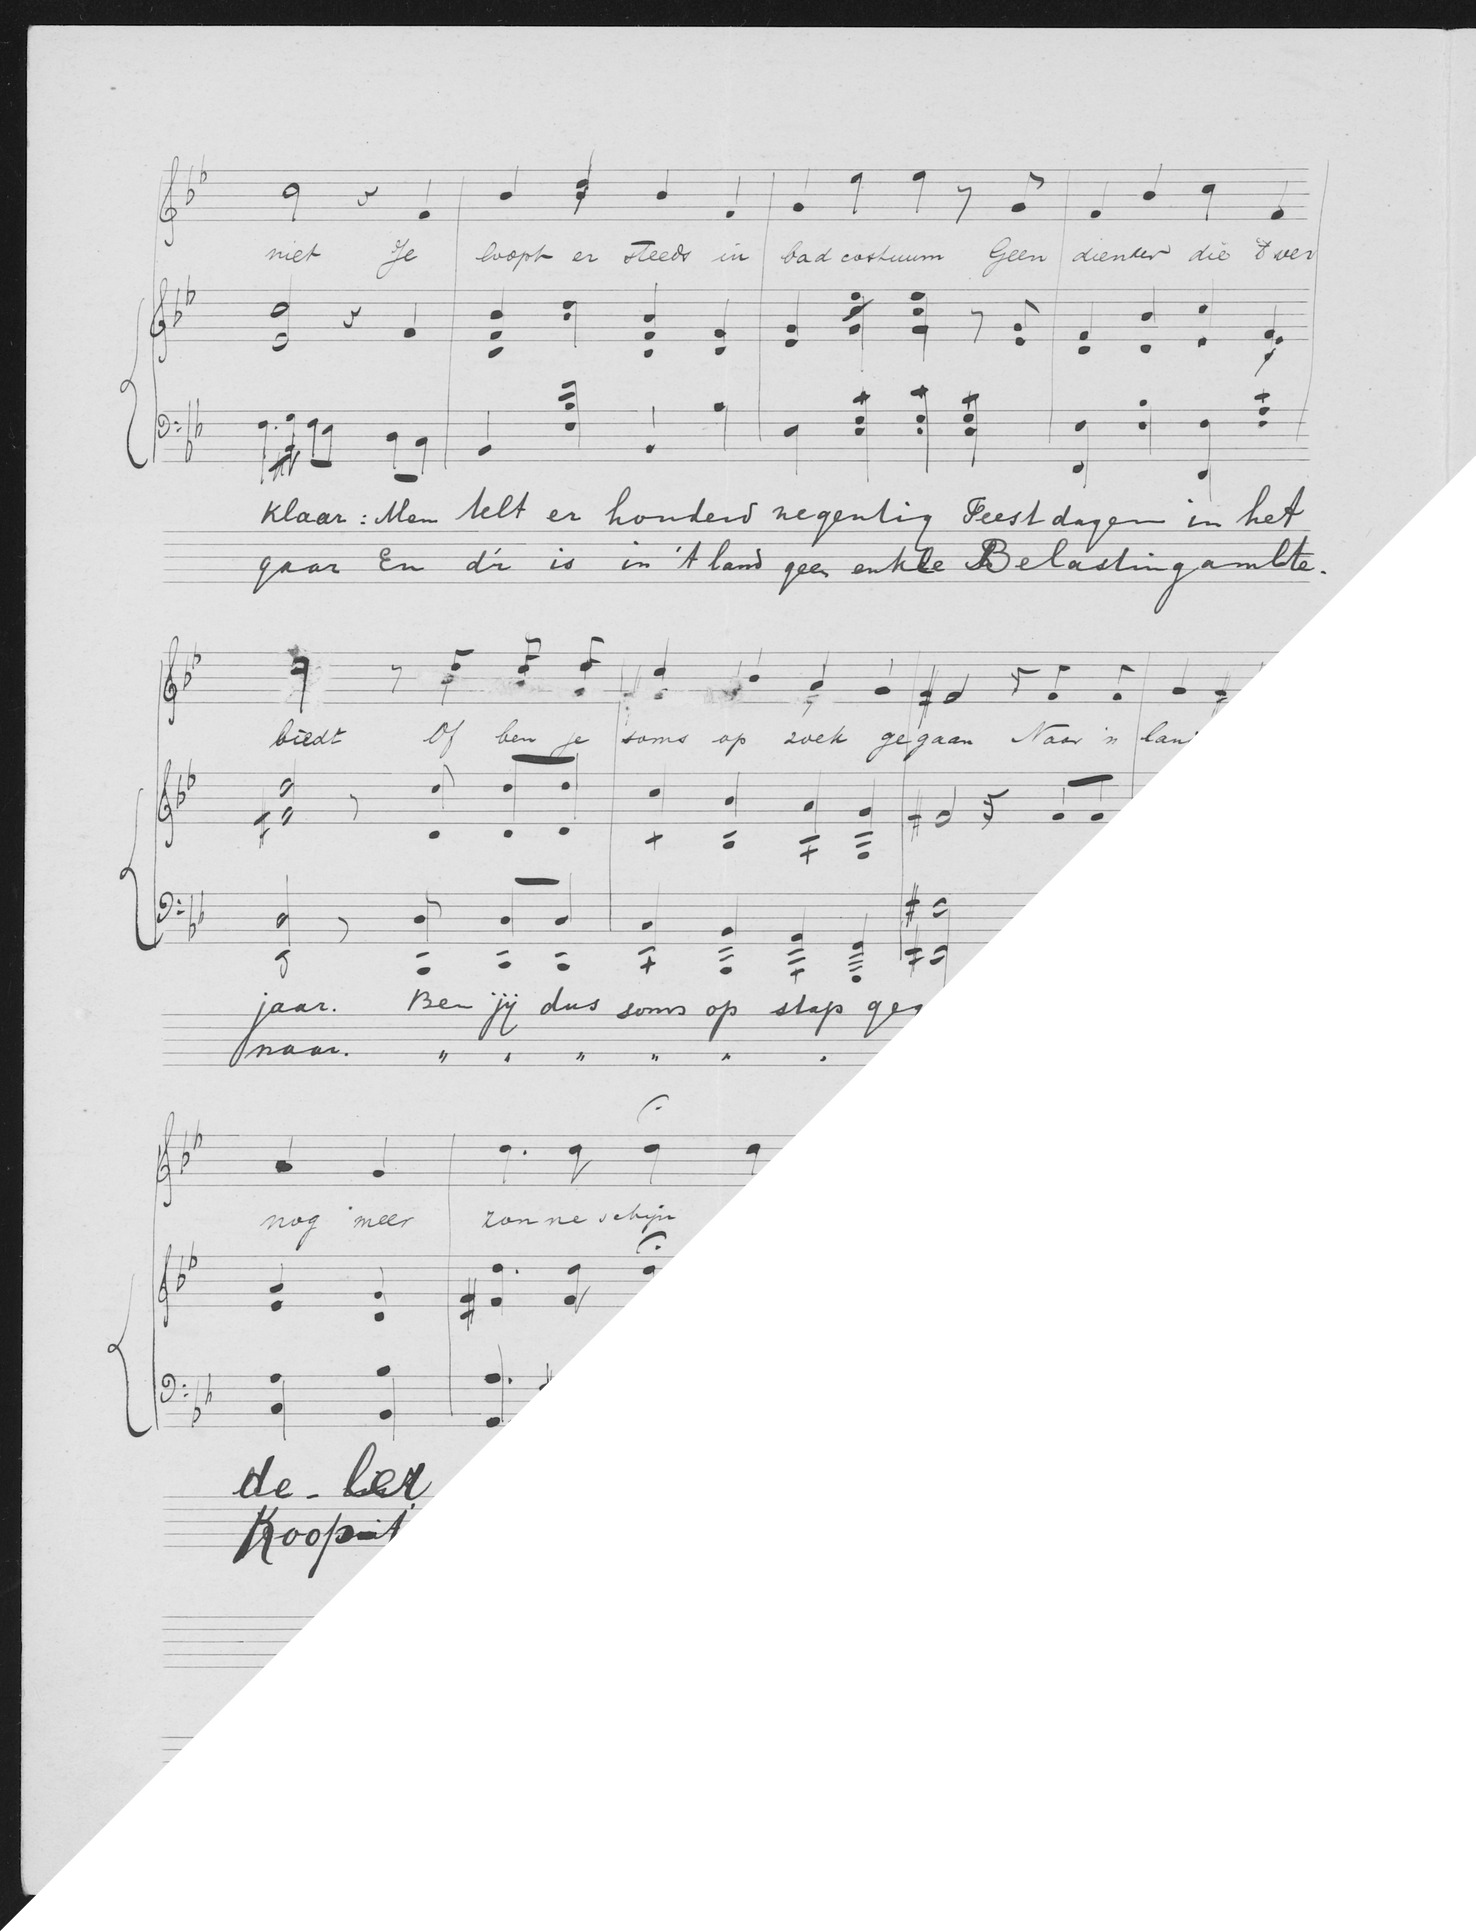 niet Je loopt er steeds in bad costuum Geen diender die 't ver
Klaar: Men telt er honderd negentig Feestdagen in het
gaar En d'r is in 't land geen enkle Belastingambte-
biedt Of ben je soms op zoek gegaan Naar 'n
jaar. Ben jij dus soms op stap
naar. " " " " "
nog meer zonneschijn
de-